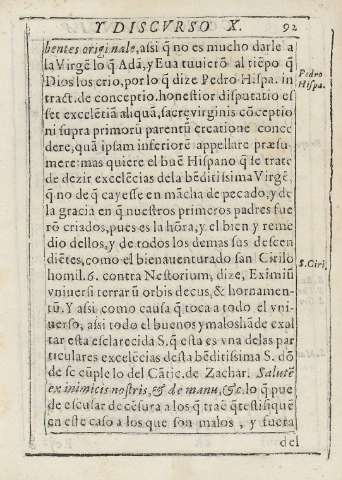 Y DISCVRSO X. 92
bentes originale, assi q̄ no es mucho darle a
la Virgē lo q̄ Adā, y Eua tuuierō al tiēpo q̄
Dios los crio, por lo q̄ dize Pedro Hispa. in
Pedro
Hispa.
tract. de conceptio. honestior disputatio es
set excelētiā aliquā, sacre virginis cōceptio
ni supra primorū parentū creatione conce
dere, quā ipsam inferiorē appellare præsu-
mere: mas quiere el buē Hispano q̄ se trate
de dezir excelēcias dela bēditissima Virgē,
q̄ no de q̄ cayesse en mācha de pecado, y de
la gracia en q̄ nuestros primeros padres fue
rō criados, pues es la hōra, y el bien y reme
dio dellos, y de todos los demas sus descen
diētes, como el bienauenturado san Cirilo
S. Ciri.
homil. 6. contra Nestorium, dize, Eximiū
vniuersi terrarū orbis decus, & hornamen-
tū. Y assi como causa q̄ toca a todo el vni-
uerso, assi todo el buenos y malos hāde exal
tar esta esclarecida S. q̄ esta es vna delas par
ticulares excelēcias desta bēditissima S. dō
de se cūple lo del Cātic. de Zachar. Salutē
ex inimicis nostris, & de manu, &c. lo q̄ pue
de escusar de cēsura a los q̄ trae q̄ testifique
en este caso a los que son malos, y fuera
del